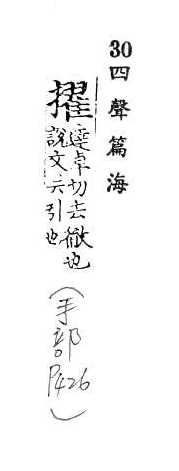 30 四聲篇海
擢
達卓切去徹也
說文云引也
(手部 P426)